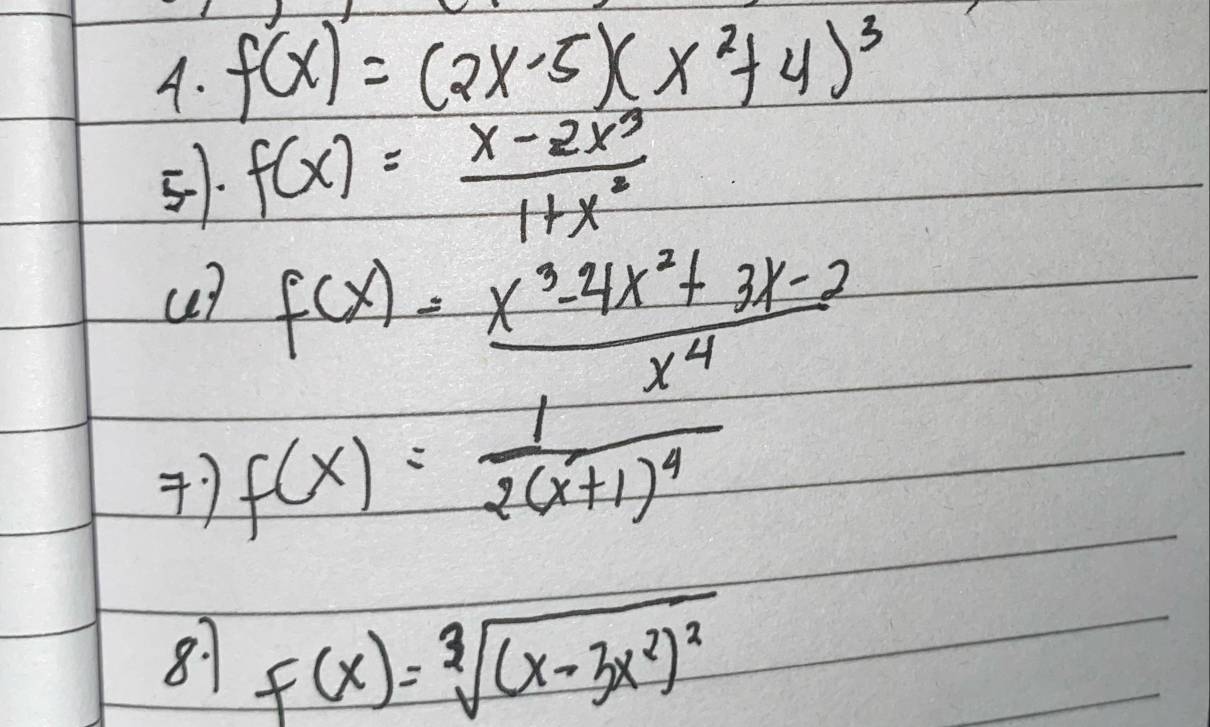 4. f(x) = (2x-5)(x²+4)³
5.). f(x) = x-2x³ / 1+x²
6.) f(x) = x³-4x²+3x-2 / x⁴
7.) f(x) = 1 / 2(x+1)⁴
8.) f(x) = ³√(x-3x²)²